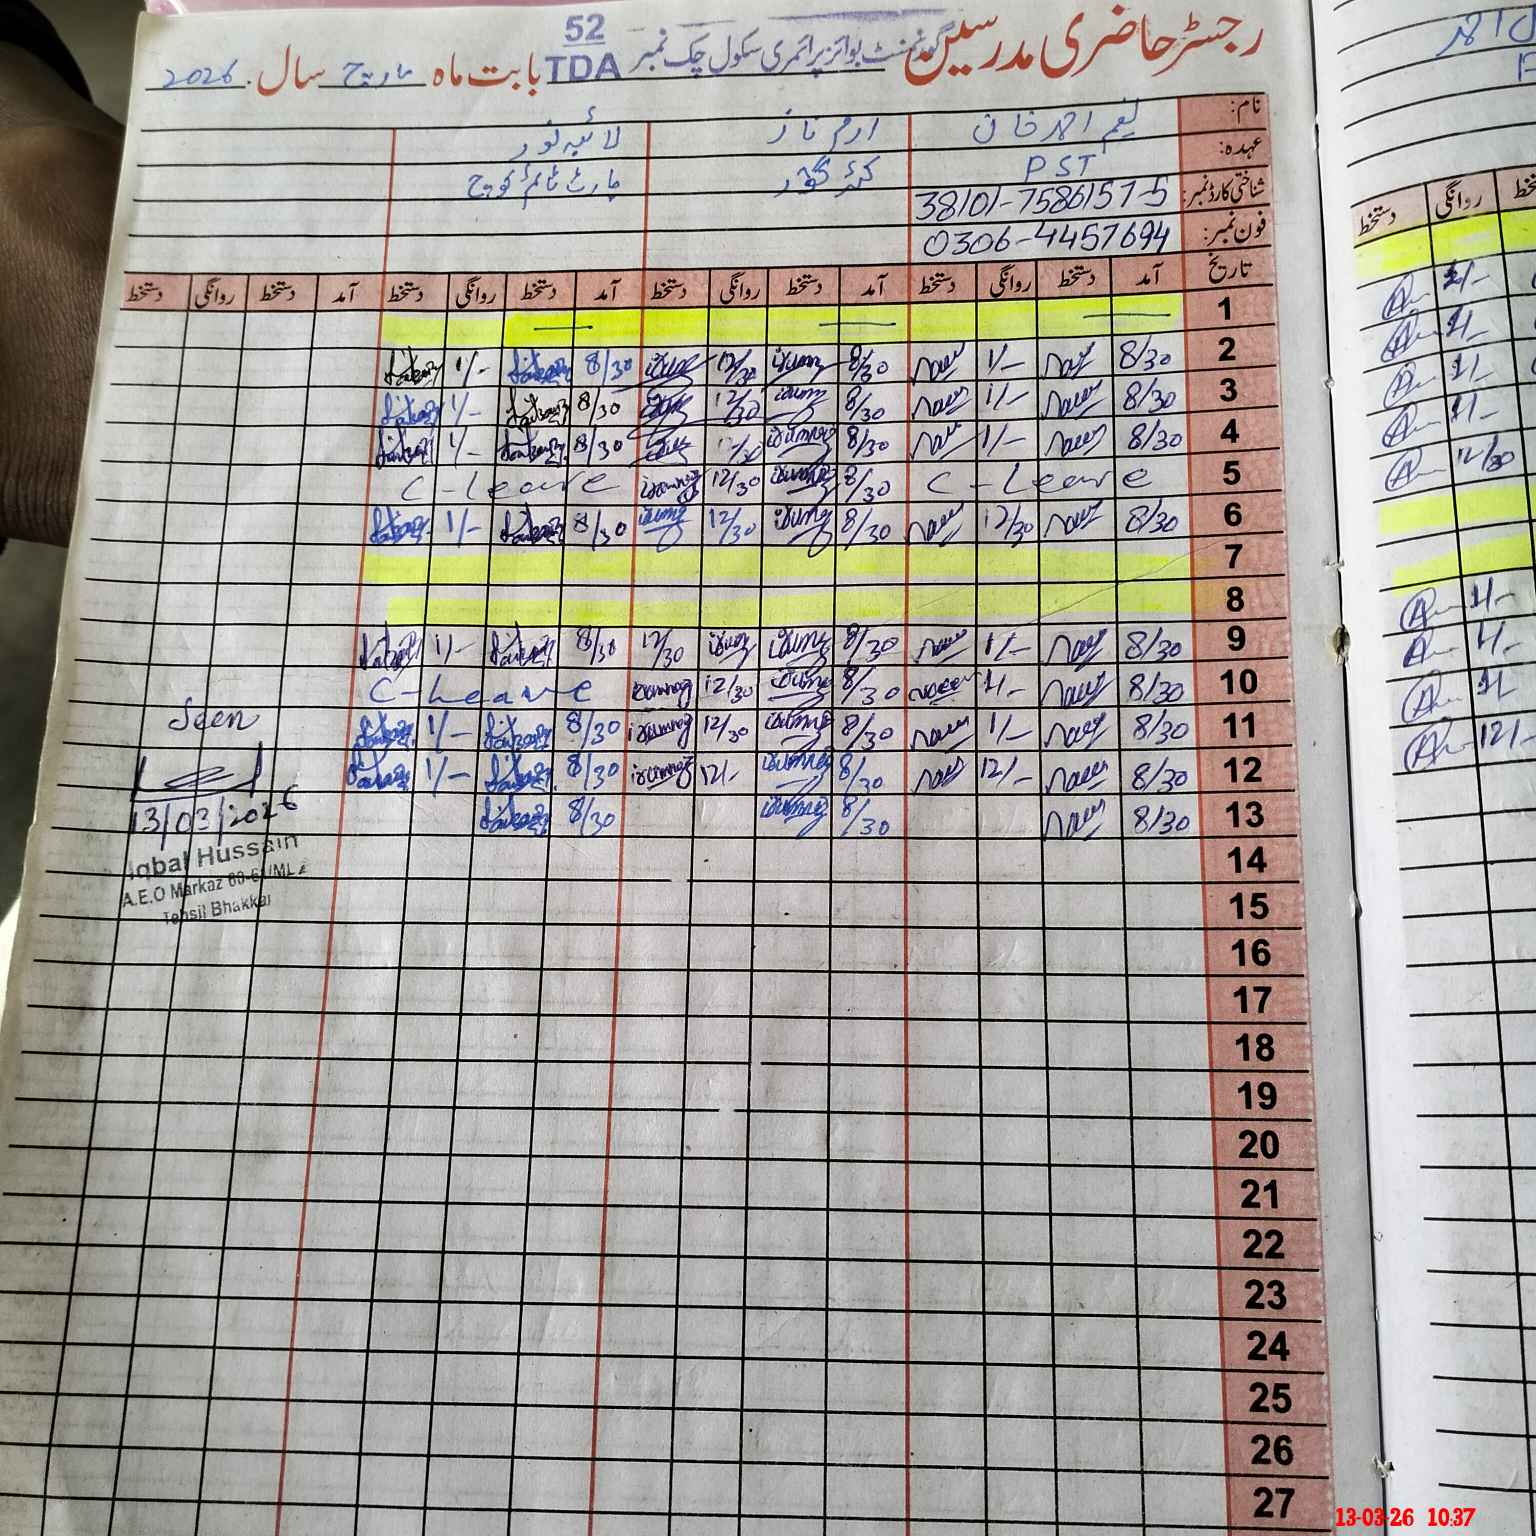 رجسٹر حاضری مدرسین گورنمنٹ بوائز پرائمری سکول چک نمبر 52 TDA بابت ماہ مارچ سال 2026
نام: نعیم احمد خان ارم ناز لائبہ نور
عہدہ: PST کیئر گیور پارٹ ٹائم کوچ
شناختی کارڈ نمبر: 38101-7586157-5
فون نمبر: 0306-4457694
تاریخ آمد دستخط روانگی دستخط آمد دستخط روانگی دستخط آمد دستخط روانگی دستخط آمد دستخط روانگی دستخط
1
2 8/30 1/- 8/30 12/30 8/30 1/-
3 8/30 1/- 8/30 12/30 8/30 1/-
4 8/30 1/- 8/30 12/30 8/30 1/-
5 C-Leave 8/30 12/30 C-Leave
6 8/30 12/30 8/30 12/30 8/30 1/-
7
8
9 8/30 1/- 8/30 12/30 8/30 1/-
10 8/30 1/- 8/30 12/30 C-Leave
11 8/30 1/- 8/30 12/30 8/30 1/-
12 8/30 12/- 8/30 12/- 8/30 1/-
13 8/30 8/30 8/30
14
15
16
17
18
19
20
21
22
23
24
25
26
27
Seen
13/03/2026
Iqbal Hussain
A.E.O Markaz
Tehsil Bhakkar
روانگی دستخط
1/-
1/-
1/-
12/30
1/-
1/-
1/-
12/-
13-03-26 10:37